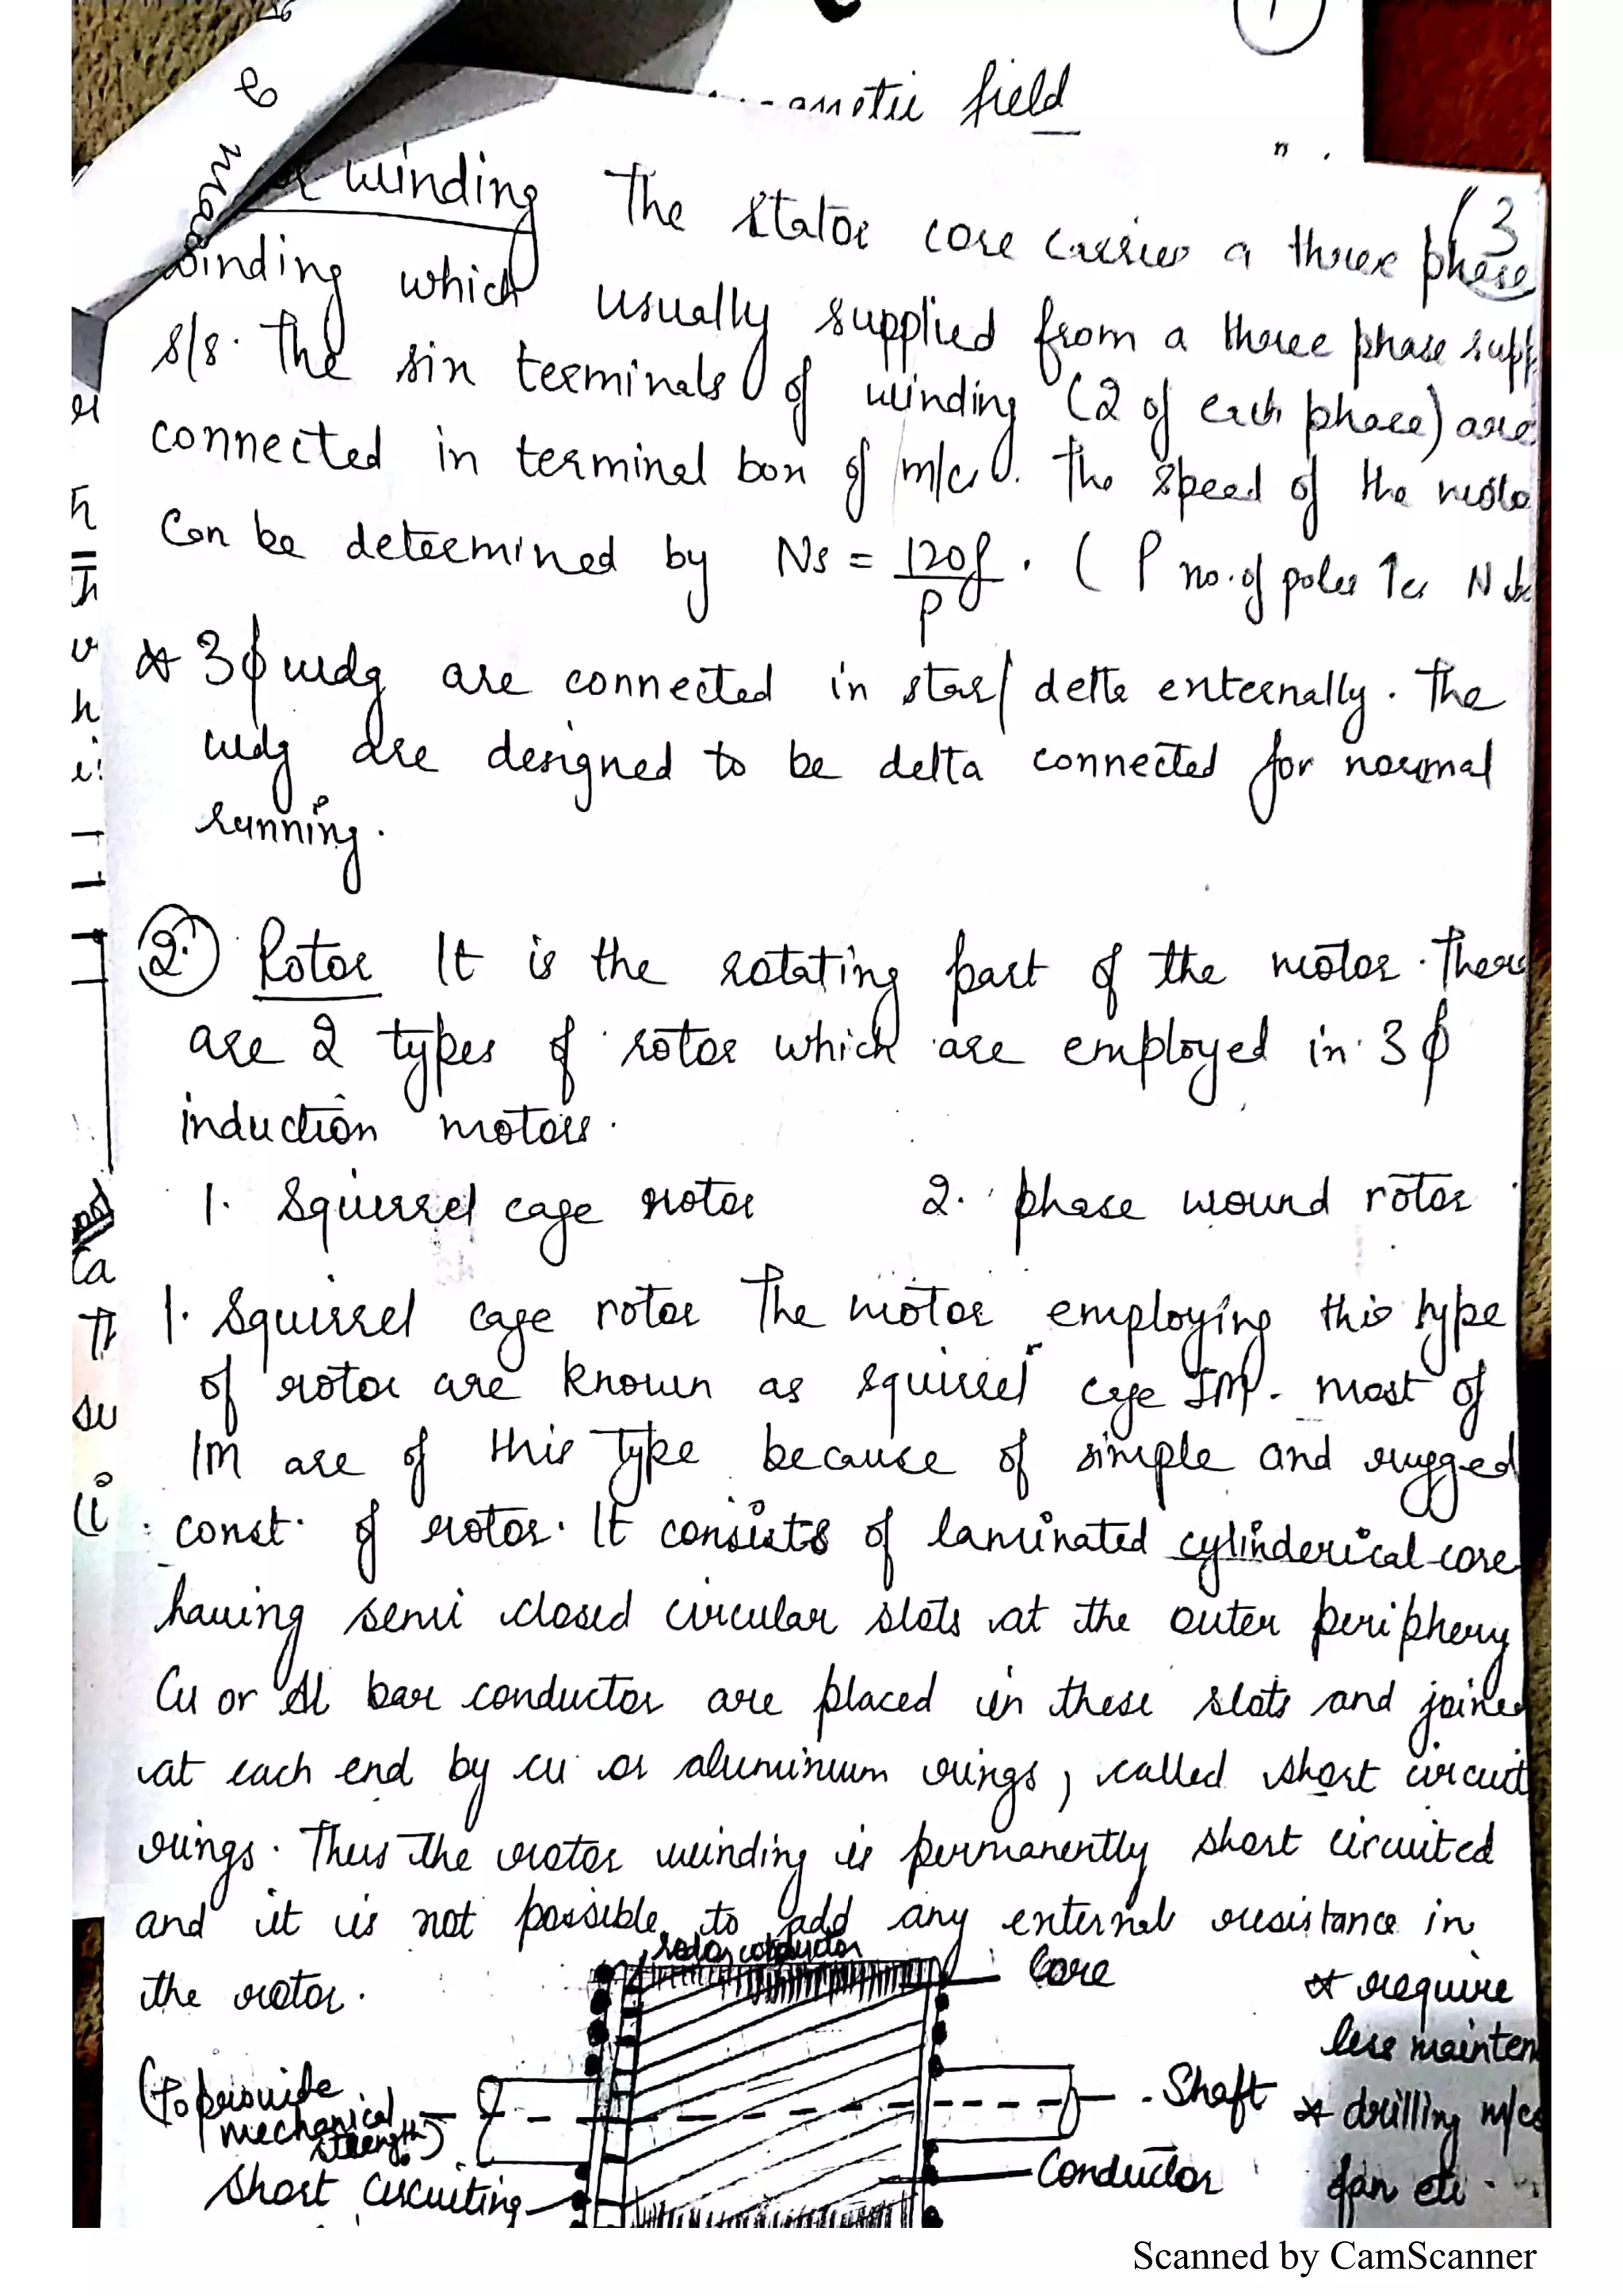 field
winding The stator core carries a three phase
(3
winding which usually supplied from a three phase supp
s/s. The six terminals of winding (2 of each phase) are
connected in terminal box of m/c. The speed of the moto
Can be determined by Ns = 120f/P . ( P no. of poles ↑es N
* 3ϕ wdg are connected in star/delta externally. The
wdg are designed to be delta connected for normal
running.
2. Rotor It is the rotating part of the motor. There
are 2 types of rotor which are employed in 3ϕ
induction motors.
1. Squirrel cage rotor 2. phase wound rotor
1. Squirrel cage rotor The motor employing this type
of rotor are known as squirrel cage IM. most of
IM are of this type because of simple and rugged
const. of rotor. It consists of laminated cylinderical core
having semi closed circular slots at the outer periphery
Cu or Al bar conductor are placed in these slots and joined
at each end by cu or aluminium rings, called short circuit
rings. Thus the rotor winding is permanently short circuited
and it is not possible to add any external resistance in
the rotor.
rotor conductor
Core
* require
less mainten
(To provide
mechanical
strength)
Shaft
* drilling m/cs
fan etc.
Short circuiting
Conductor
Scanned by CamScanner